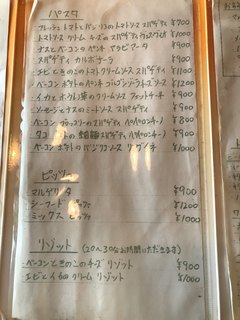 パスタ
フレッシュトマトとバジリコのトマトソース スパゲティ ¥900
トマトソース クリーム チーズの スパゲティ ¥1000
ナスとベーコンの ペンネ アラビアータ ¥900
スパゲティ カルボナーラ ¥900
エビときのこのトマトクリームソース スパゲティ ¥1100
ベーコン ポテトのペンネ ゴルゴンゾーラチーズソース ¥1200
イカとホウレン草のクリームソース フェットチーネ ¥900
ソーセージとナスのミートソース スパゲティ ¥900
ベーコン ブロッコリーのスパゲティ ペペロンチーノ ¥900
タコ の スパゲティ ペペロンチーノ ¥900
ベーコン ポテトのバジリコソース リングイネ ¥1000
ピッツァ
マルゲリータ ¥900
シーフード ピッツァ ¥1200
ミックス ピッツァ ¥1000
リゾット (20〜30分お時間いただきます)
ベーコンときのこのチーズ リゾット ¥900
エビとイカのクリーム リゾット ¥1000